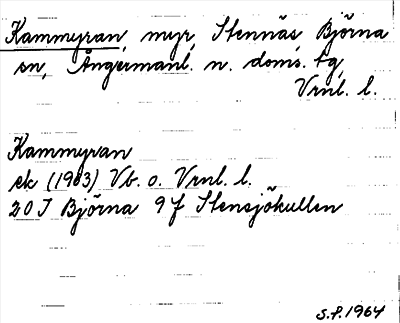 Kammyran, myr, Stennäs, Björna
sn, Ångermanl. n. doms. tg,
Vrnl. l.
Kammyran
ek (1963) Vb. o. Vrnl. l.
20 J Björna 9 f Stensjökullen
S.P. 1964